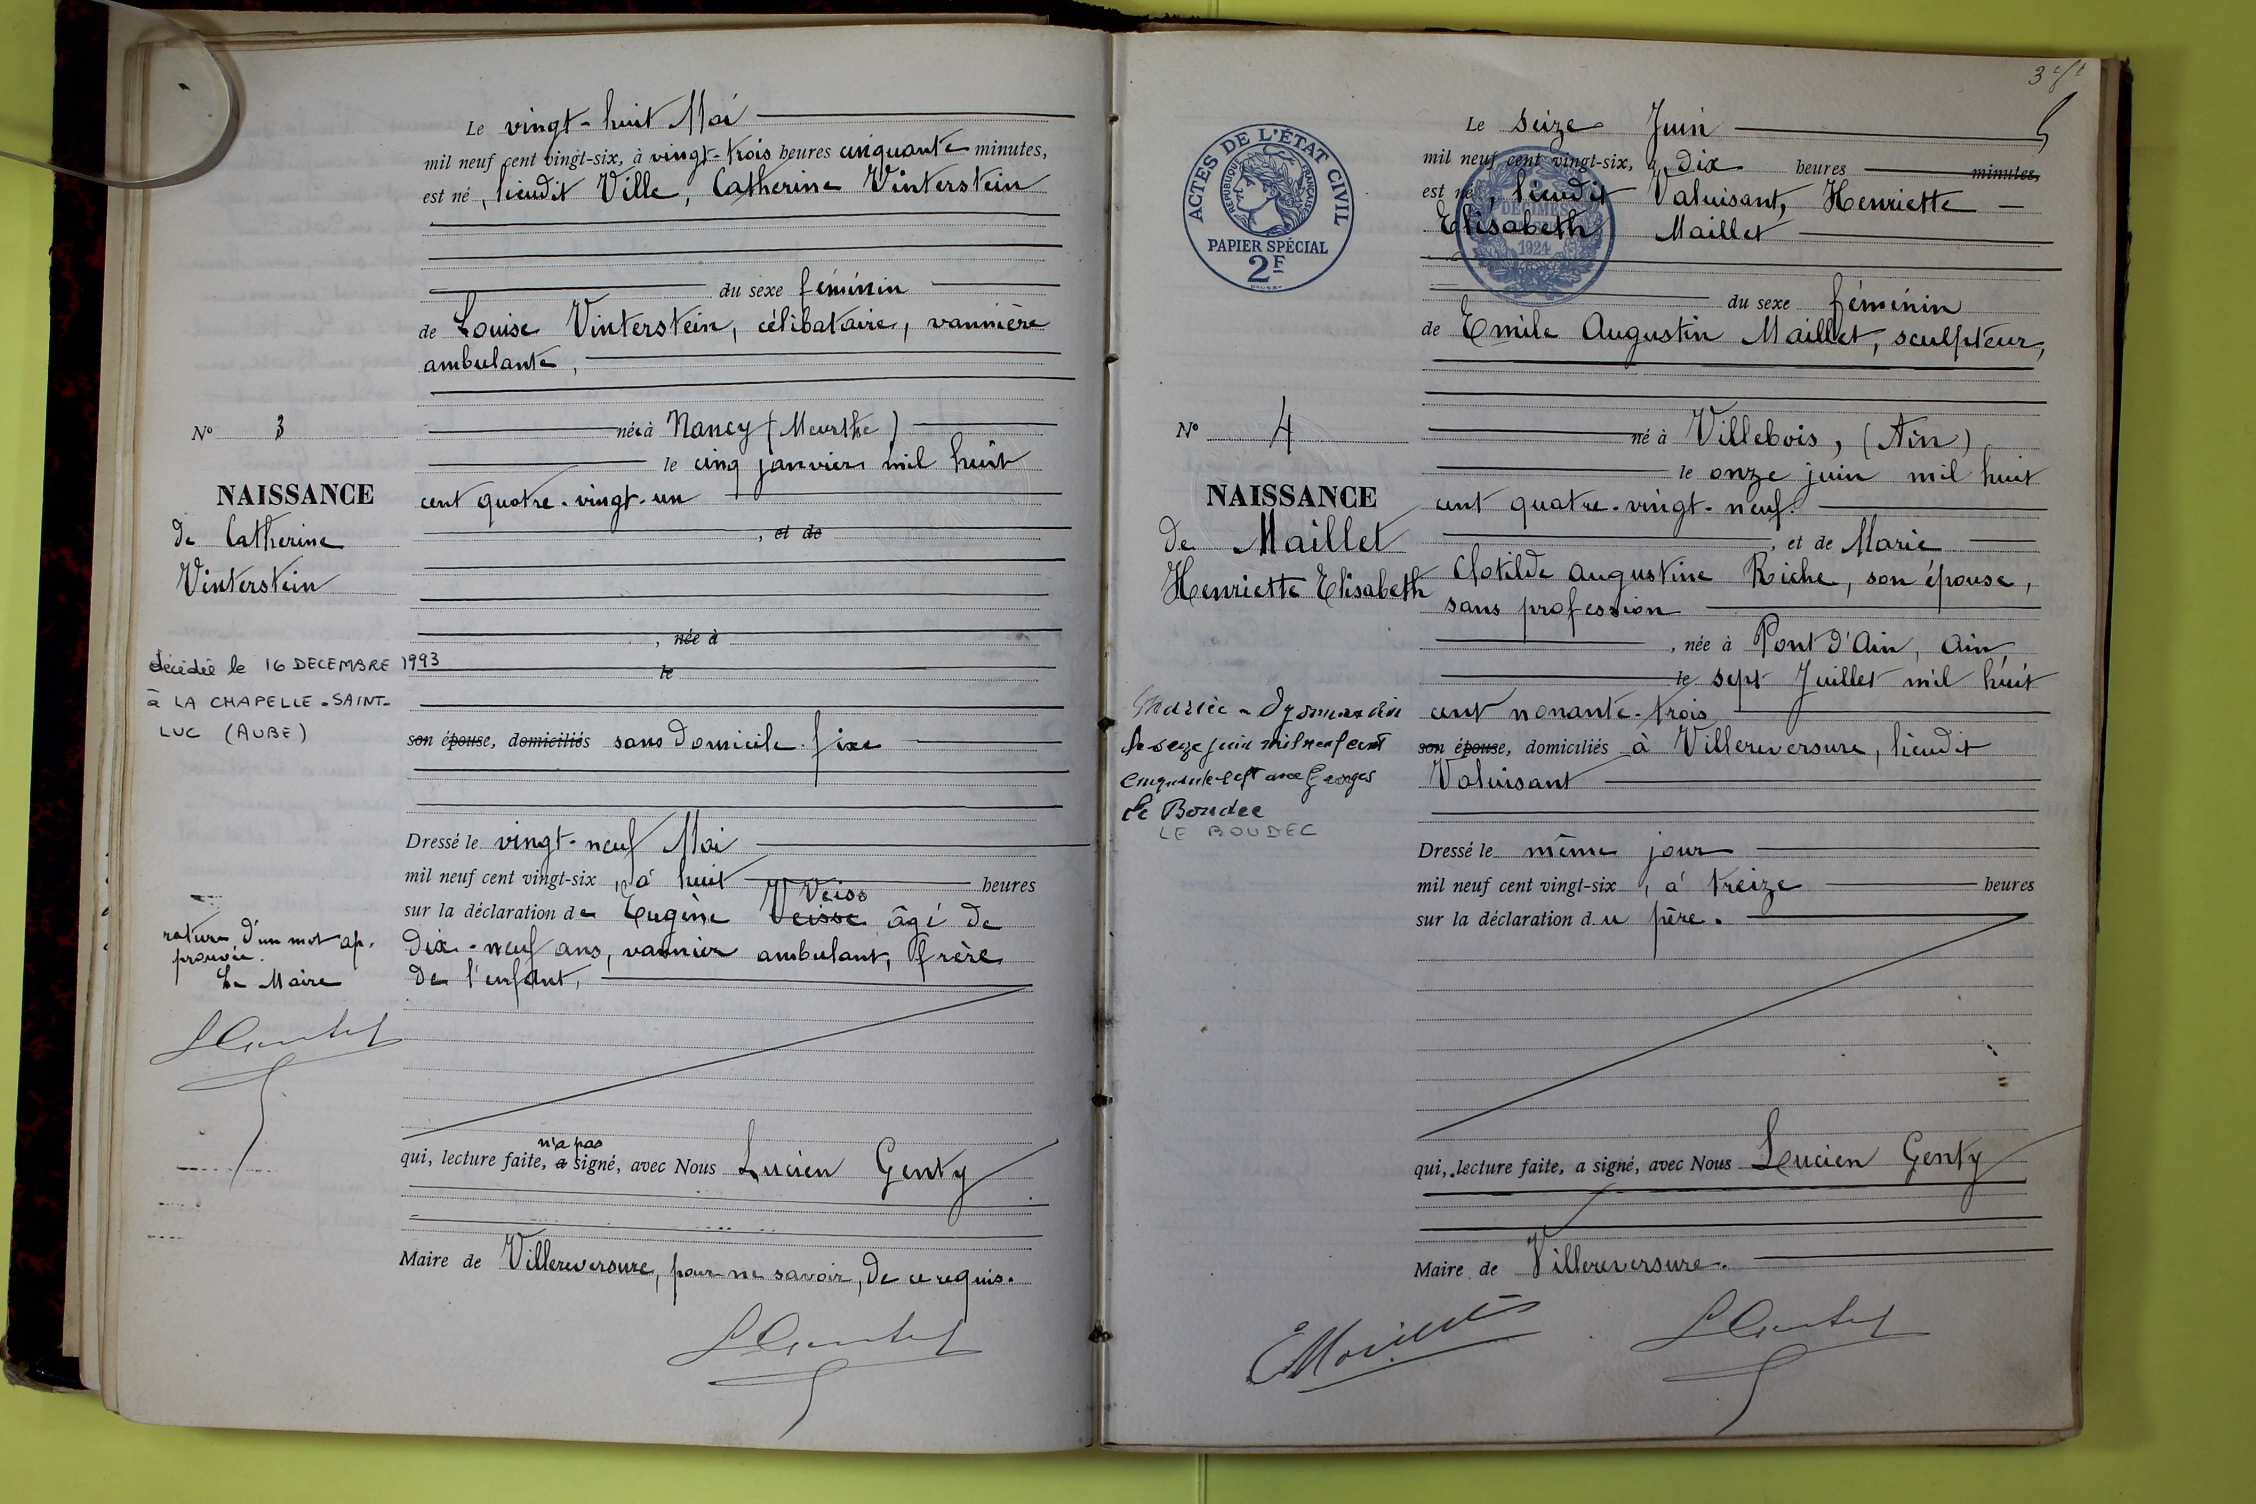 Le vingt-huit Mai
mil neuf cent vingt-six, à vingt-trois heures cinquante minutes,
est né, lieudit Ville, Catherine Vinterstein
du sexe féminin
de Louise Vinterstein, célibataire, vannière
ambulante,
née à Nancy (Meurthe)
le cinq janvier mil huit
cent quatre-vingt-un
, et de
, née à
le
son épouse, domiciliés sans domicile fixe
Dressé le vingt-neuf Mai
mil neuf cent vingt-six, à huit heures
Veiss
sur la déclaration de Eugène Veisse âgé de
dix-neuf ans, vannier ambulant, frère
de l'enfant,
n'a pas
qui, lecture faite, a signé, avec Nous Lucien Genty
Maire de Villereversure, pour ne savoir, de ce requis.
N° 3
NAISSANCE
de Catherine
Vinterstein
décédée le 16 DECEMBRE 1993
à LA CHAPELLE-SAINT-
LUC (AUBE)
rature d'un mot ap-
prouvée.
Le Maire
3
ACTES DE L'ÉTAT CIVIL
RÉPUBLIQUE FRANÇAISE
PAPIER SPÉCIAL
2F
DÉCIMES
1924
Le seize Juin
mil neuf cent vingt-six, à dix heures minutes,
est né, lieudit Valuisant, Henriette
Elisabeth Maillet
du sexe féminin
de Emile Augustin Maillet, sculpteur,
né à Villebois, (Ain)
le onze juin mil huit
cent quatre-vingt-neuf.
, et de Marie
Clotilde Augustine Riche, son épouse,
sans profession
, née à Pont d'Ain, Ain,
le sept Juillet mil huit
cent nonante-trois
son épouse, domiciliés à Villereversure, lieudit
Valuisant
Dressé le même jour
mil neuf cent vingt-six, à treize heures
sur la déclaration du père.
qui, lecture faite, a signé, avec Nous Lucien Genty
Maire de Villereversure.
EMaillet
N° 4
NAISSANCE
de Maillet
Henriette Elisabeth
Mariée à
le seize juin mil neuf cent
cinquante-sept avec Georges
Le Boudec
LE BOUDEC